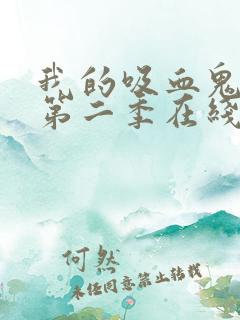 我的吸血鬼
第二季在线
何然
未经同意禁止转载